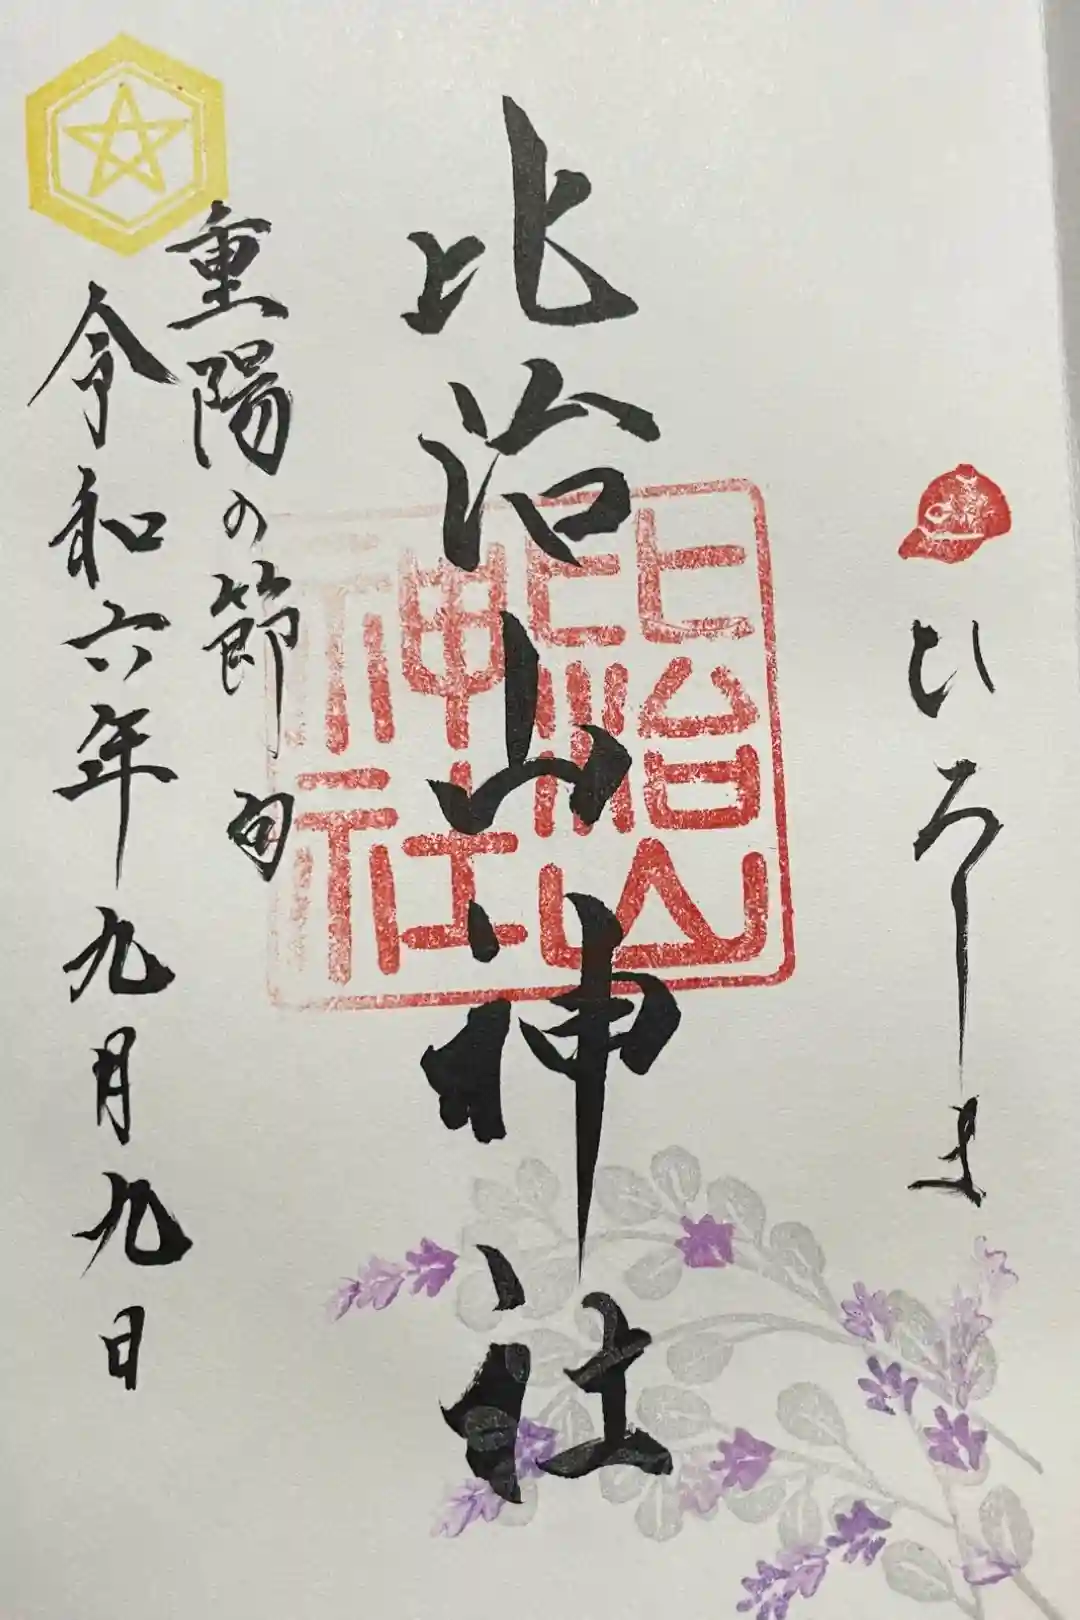 ひろしま
比治山神社
比治山
神社
重陽の節句
令和六年九月九日